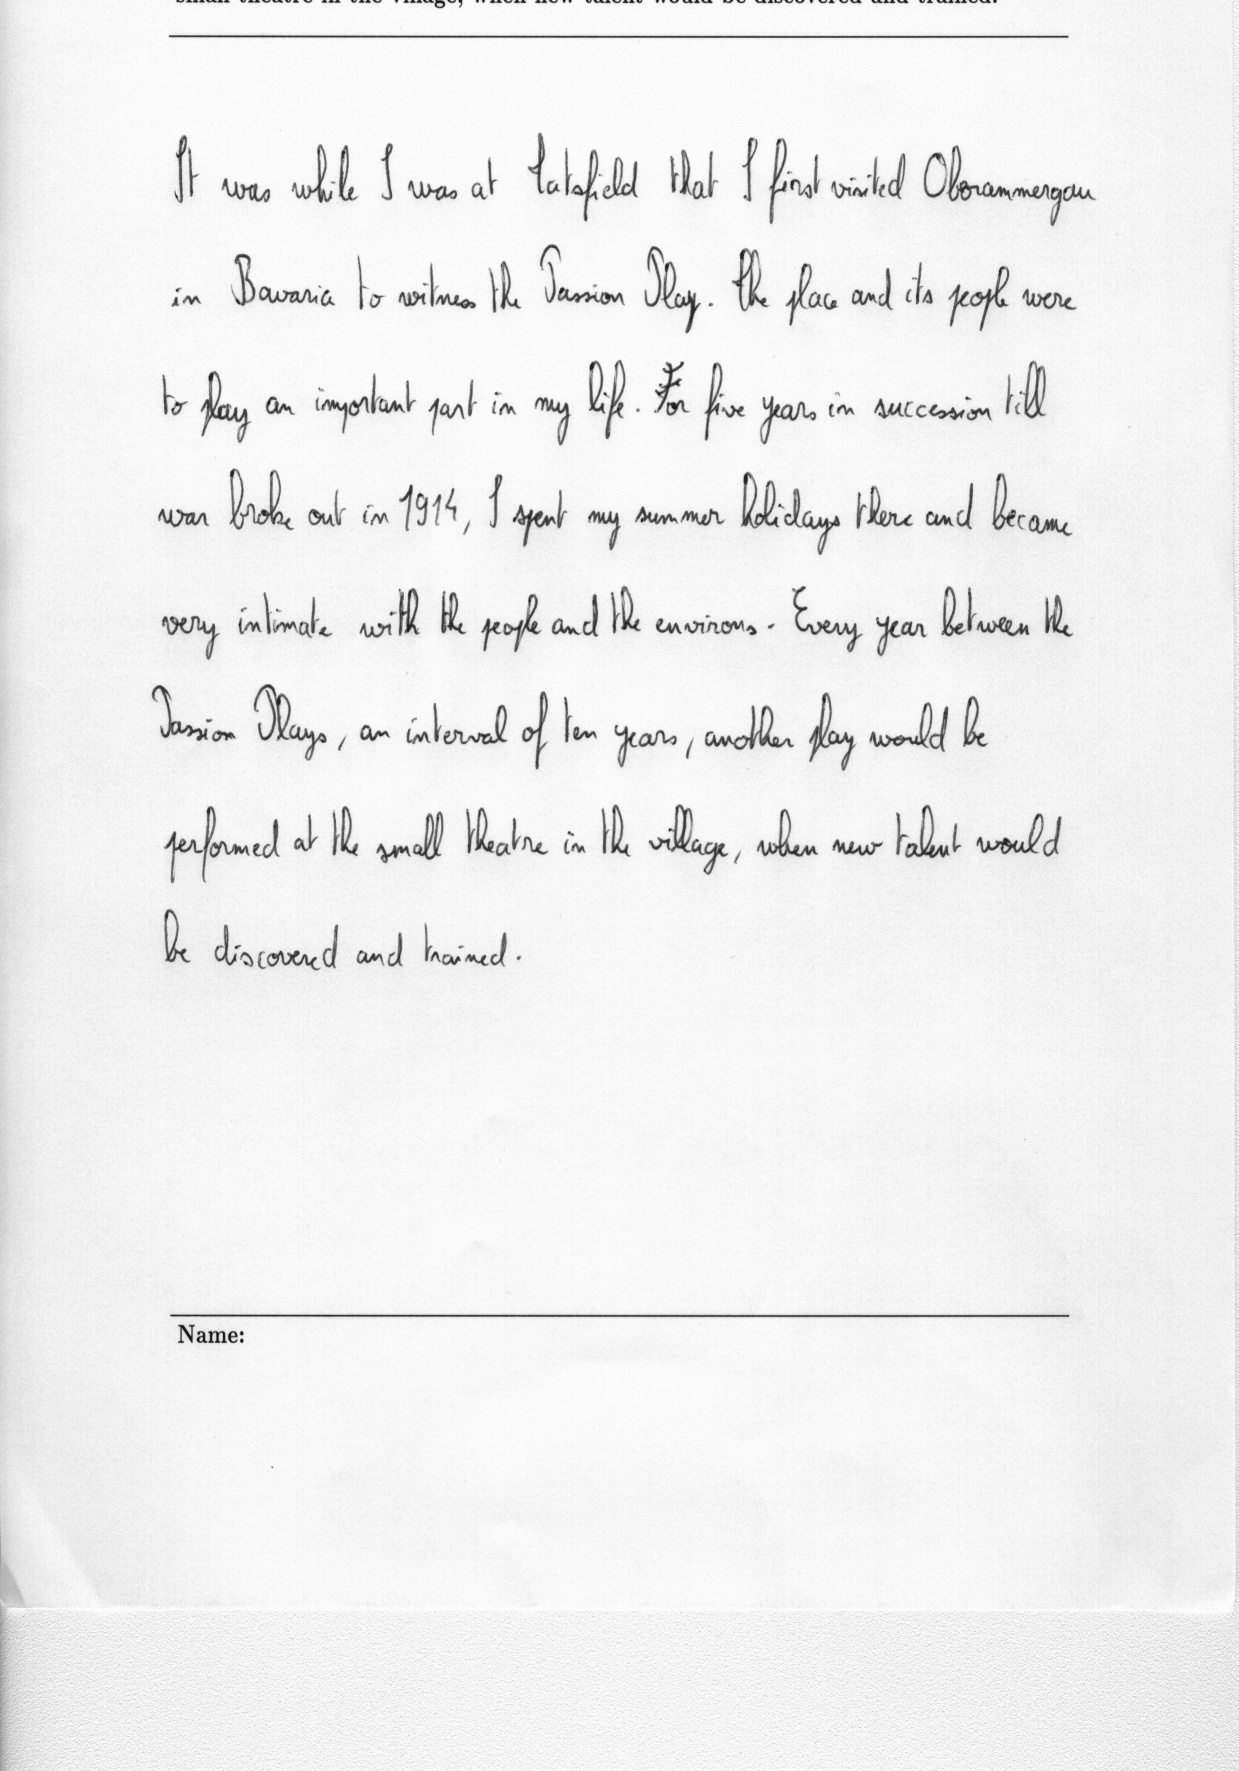 small theatre in the village, when new talent would be discovered and trained.
It was while I was at Tatsfield that I first visited Oberammergau
in Bavaria to witness the Passion Play. The place and its people were
to play an important part in my life. For five years in succession till
war broke out in 1914, I spent my summer holidays there and became
very intimate with the people and the environs. Every year between the
Passion Plays, an interval of ten years, another play would be
performed at the small theatre in the village, when new talent would
be discovered and trained.
Name: